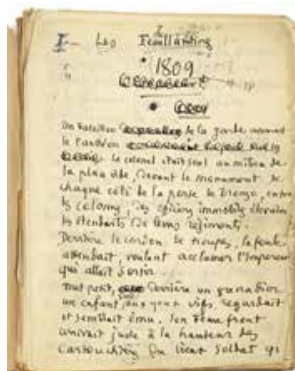 I — Les Feuillantines
1809
Un bataillon de la garde
le Panthéon
Le colonel était seul au milieu de
la place vide, devant le monument. De
chaque côté de la porte de bronze, entre
les colonnes, des officiers immobiles élevaient
les étendards de leurs régiments.
Derrière le cordon de troupes, la foule
attendait, voulant acclamer l'Empereur
qui allait sortir.
Tout petit, derrière un grenadier
un enfant aux yeux vifs, regardait
et semblait ému. Son front
arrivait juste à la hauteur des
cartouchières du vieux soldat qui